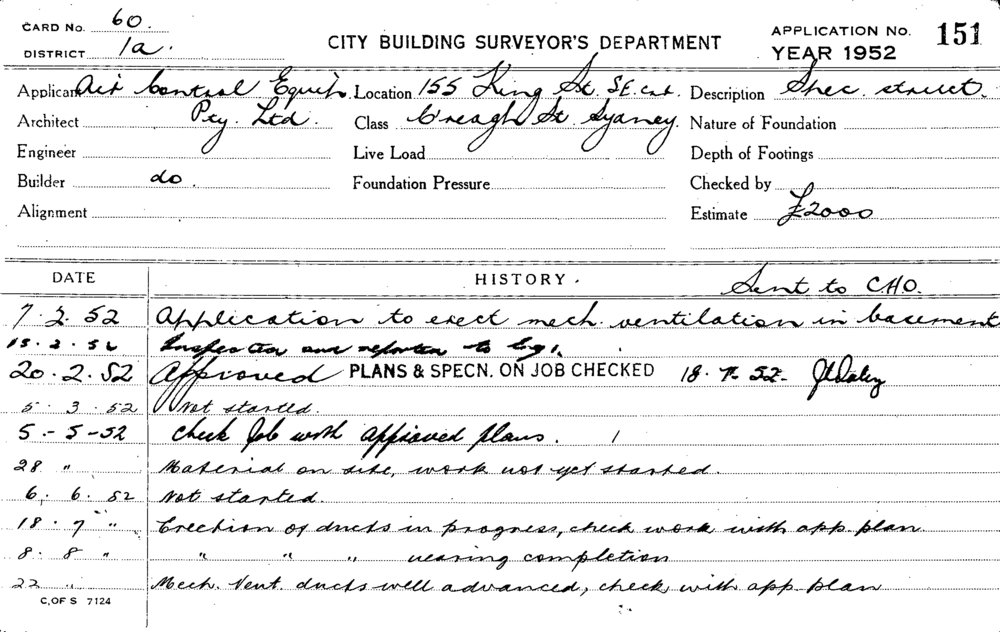 CARD No. 60. CITY BUILDING SURVEYOR'S DEPARTMENT APPLICATION No. 151
DISTRICT 1a. YEAR 1952
Applicant Air Control Equip. Location 155 King St. SE. cnr. Description Spec. struct.
Architect Pty. Ltd. Class C'reagh St. Sydney. Nature of Foundation
Engineer Live Load Depth of Footings
Builder do Foundation Pressure Checked by
Alignment Estimate £2000
DATE HISTORY. Sent to C.H.O.
7.2.52 Application to erect mech. ventilation in basement
15.2.52 Inspection and to
20.2.52 Approved PLANS & SPECN. ON JOB CHECKED 18.7.52.
5.3.52 Not started.
5.-5-52 Check Job with approved plans.
28 " Material on site, work not yet started.
6.6.52 Not started.
18.7 " Erection of ducts in progress, check work with app. plan
8.8 " " " " nearing completion
22 " Mech. Vent. ducts well advanced, check with app. plan
C. OF S 7124